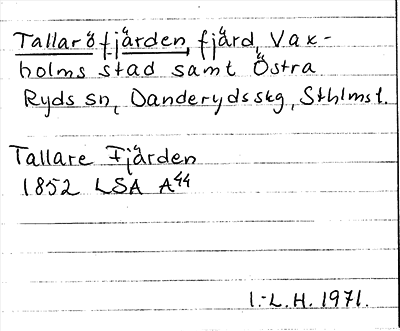 Tallaröfjärden, fjärd, Vax-
holms stad samt Östra
Ryds sn, Danderydsskg, Sthlms l.
Tallare Fjärden
1852 LSA A44
I.-L.H. 1971.